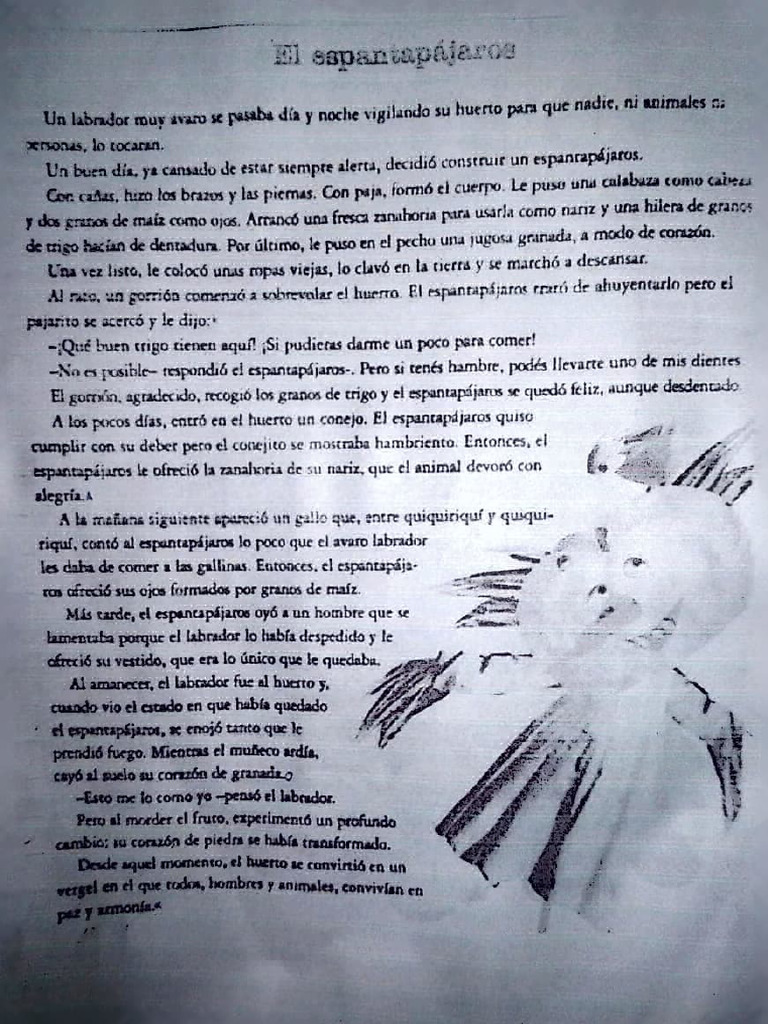 El espantapájaros
Un labrador muy avaro se pasaba día y noche vigilando su huerto para que nadie, ni animales ni
personas, lo tocaran.
Un buen día, ya cansado de estar siempre alerta, decidió construir un espantapájaros.
Con cañas, hizo los brazos y las piernas. Con paja, formó el cuerpo. Le puso una calabaza como cabeza
y dos granos de maíz como ojos. Arrancó una fresca zanahoria para usarla como nariz y una hilera de granos
de trigo hacían de dentadura. Por último, le puso en el pecho una jugosa granada, a modo de corazón.
Una vez listo, le colocó unas ropas viejas, lo clavó en la tierra y se marchó a descansar.
Al rato, un gorrión comenzó a sobrevolar el huerto. El espantapájaros trató de ahuyentarlo pero el
pajarito se acercó y le dijo:
–¡Qué buen trigo tienen aquí! ¡Si pudieras darme un poco para comer!
–No es posible– respondió el espantapájaros-. Pero si tenés hambre, podés llevarte uno de mis dientes
El gorrión, agradecido, recogió los granos de trigo y el espantapájaros se quedó feliz, aunque desdentado.
A los pocos días, entró en el huerto un conejo. El espantapájaros quiso
cumplir con su deber pero el conejito se mostraba hambriento. Entonces, el
espantapájaros le ofreció la zanahoria de su nariz, que el animal devoró con
alegría.
A la mañana siguiente apareció un gallo que, entre quiquiriquí y quiqui-
riquí, contó al espantapájaros lo poco que el avaro labrador
les daba de comer a las gallinas. Entonces, el espantapája-
ros ofreció sus ojos formados por granos de maíz.
Más tarde, el espantapájaros oyó a un hombre que se
lamentaba porque el labrador lo había despedido y le
ofreció su vestido, que era lo único que le quedaba.
Al amanecer, el labrador fue al huerto y,
cuando vio el estado en que había quedado
el espantapájaros, se enojó tanto que le
prendió fuego. Mientras el muñeco ardía,
cayó al suelo su corazón de granada.
–Esto me lo como yo –pensó el labrador.
Pero al morder el fruto, experimentó un profundo
cambio: su corazón de piedra se había transformado.
Desde aquel momento, el huerto se convirtió en un
vergel en el que todos, hombres y animales, convivían en
paz y armonía.